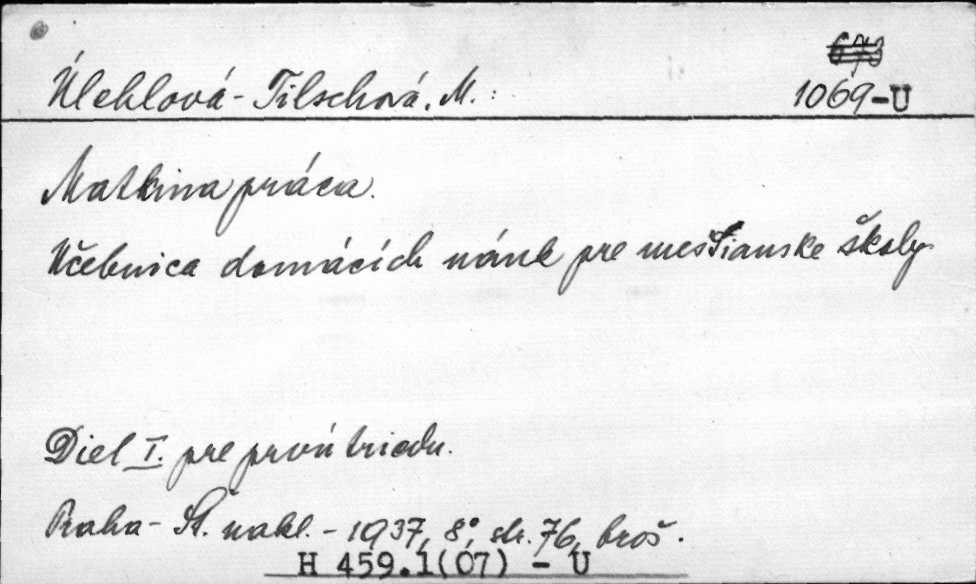 673
Úlehlová-Tilschová, M.:
1069-U
Matkina práca.
Učebnica domácích náuk pre mešťianske školy.
Diel I. pre prvú triedu.
Praha - Št. nakl. - 1937, 8°, str. 76, broš.
H 459.1(07) - U